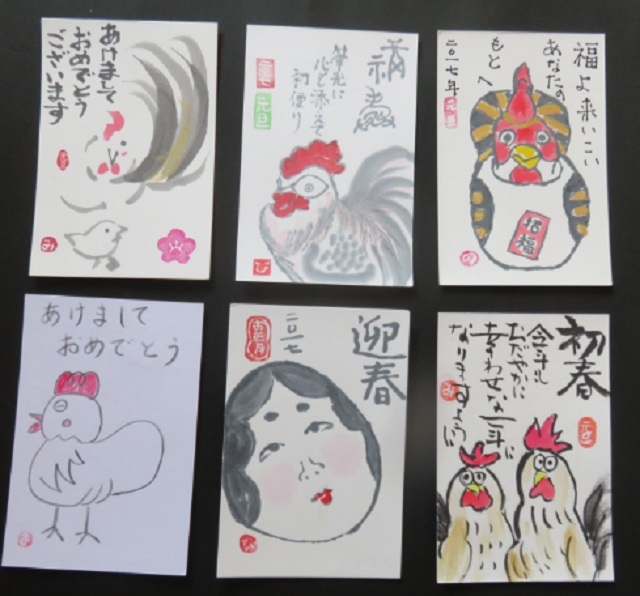 あけまして
おめでとう
ございます
筆先に
心を添えて
初便り
元旦
福よ来いこい
あなたの
もとへ
二〇一七年
招福
あけまして
おめでとう
迎春
二〇一七
初春
今年も
おだやかに
幸わせな一年に
なりますように